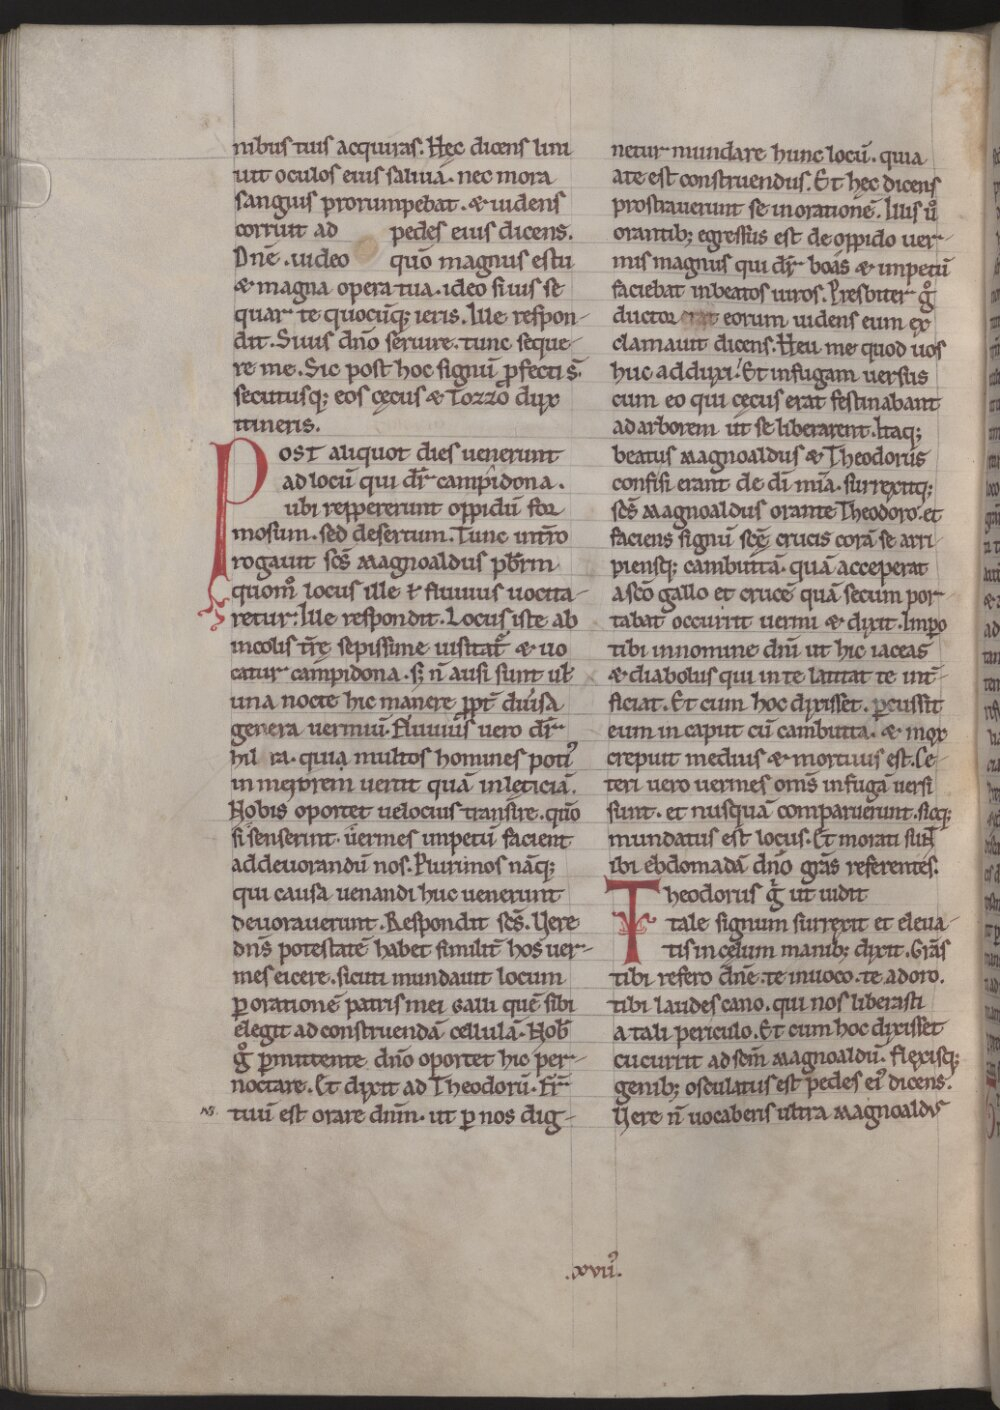 nibus tuis acquiras. Hęc dicens lini
uit oculos eius saliuā. nec mora
sanguis prorumpebat. & uidens
corruit ad pedes eius dicens.
Dn̄e. uideo quō magnus es tu
& magna opera tua. ideo si uis se
quar te quocūq; ieris. Ille respon-
dit. Si uis dn̄o seruire. tunc seque-
re me. Sic post hoc signū ꝓfecti s̄.
secutusq; eos cęcus & Tozzo dux
itineris.
Post aliquot dies uenerunt
ad locū qui dr̄ campidona.
ubi reppererunt oppidū for
mosum. sed desertum. Tunc int̄ro
rogauit sc̄s Magnoaldus pb̄rm
quom̊ locus ille ł fluuius uocita-
retur. Ille respondit. Locus iste ab
incolis tr̄ę sepissime uisitat᷑ & uo
catur campidona. s; n̄ ausi sunt uł
una nocte hic manere ꝓpt̄ diūsa
genera uermiū. Fluuius uero dr̄
hil ra. quia multos homines poti᷒
in merorem uertit quā in leticiā.
Nobis oportet uelocius transire. qm̄o
si senserint uermes impetū facient
ad deuorandū nos. Plurimos nāq;
qui causa uenandi huc uenerunt
deuorauerunt. Respondit sc̄s. Vere
dn̄s potestatē habet similit̄ hos uer-
mes eicere. sicuti mundauit locum
ꝑ orationē patris mei Galli quē sibi
elegit ad construendā cellulā. Nob̄
g̊ ꝑmittente dn̄o oportet hic per-
noctare. Et dixit ad Theodorū. Fr̄
tuū est orare dn̄m. ut ꝑ nos dig-
netur mundare hunc locū. quia
a te est construendus. Et hęc dicens
prostrauerunt se in orationē. Illis ů
orantib; egressus est de oppido uer-
mis magnus qui dr̄ boas & impetū
faciebat in beatos uiros. Presbiter g̊
ductor eorum uidens eum ex
clamauit dicens. Heu me quod uos
huc adduxi. Et in fugam uersus
cum eo qui cęcus erat festinabant
ad arborem ut se liberarent. Itaq;
beatus Magnoaldus & Theodorus
confisi erant de dī mīa. surrexitq;
sc̄s Magnoaldus orante Theodoro. et
faciens signū sc̄ę crucis corā se arri
piensq; cambuttā. quā acceperat
a sc̄o gallo et crucē quā secum por
tabat occurrit uermi & dixit. Impo
tibi in nomine dn̄i ut hic iaceas
& diabolus qui in te latitat te int̄
ficiat. Et cum hoc dixisset. ꝑcussit
eum in caput cū cambutta. & mox
crepuit medius & mortuus est. Ce-
teri uero uermes om̄s in fugā uersi
sunt. et nusquā comparuerunt. sicq;
mundatus est locus. Et morati sun̄
ibi ebdomadā dn̄o gr̄as referentes.
Theodorus g̊ ut uidit
tale signum surrexit et eleua-
tis in cęlum manib; dixit. Gr̄as
tibi refero dn̄e. te inuoco. te adoro.
tibi laudes cano. qui nos liberasti
a tali periculo. Et cum hoc dixisset
cucurrit ad sc̄m Magnoaldū. flexisq;
genib; osculatus est pedes ei᷒ dicens.
Vere n̄ uocaberis ultra Magnoald᷒
.xvii᷒.